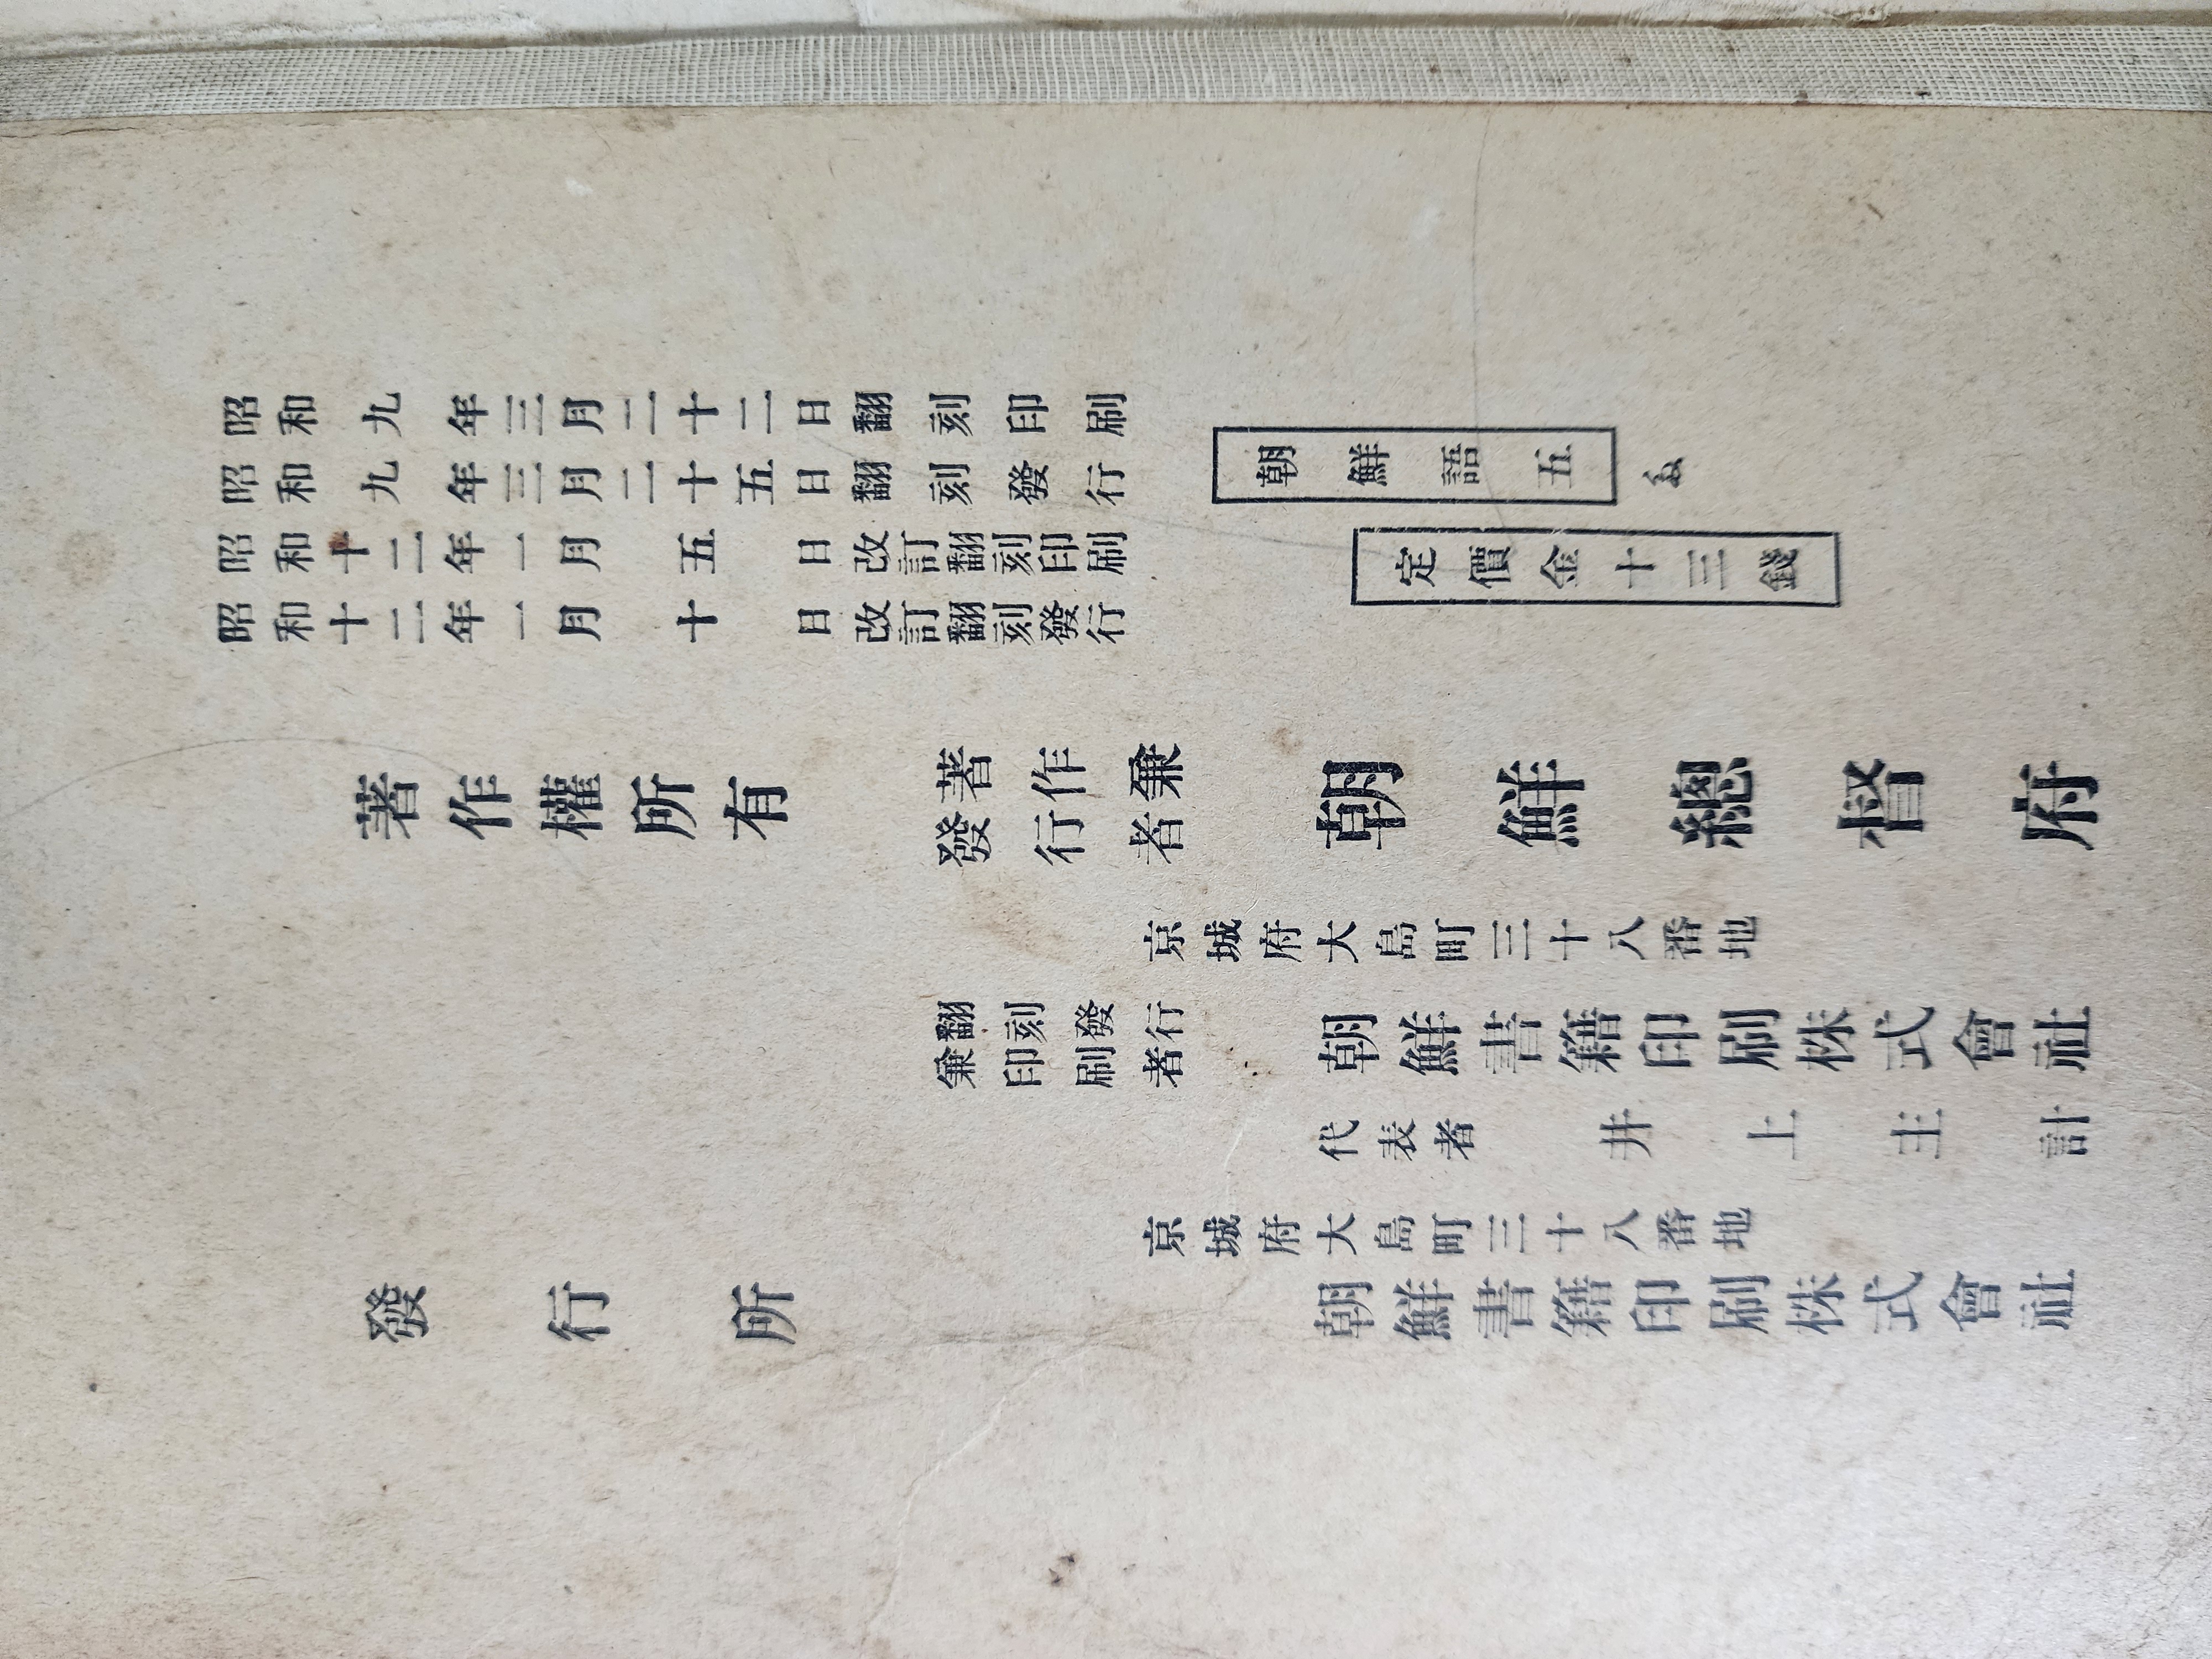 昭和九年三月二十二日翻刻印刷
昭和九年三月二十五日翻刻發行
昭和十二年一月五日改訂翻刻印刷
昭和十二年一月十日改訂翻刻發行
朝鮮語五
定價金十三錢
著作權所有
著作兼
發行者
朝鮮總督府
京城府大島町三十八番地
翻刻發行
兼印刷者
朝鮮書籍印刷株式會社
代表者 井上主計
京城府大島町三十八番地
發行所
朝鮮書籍印刷株式會社